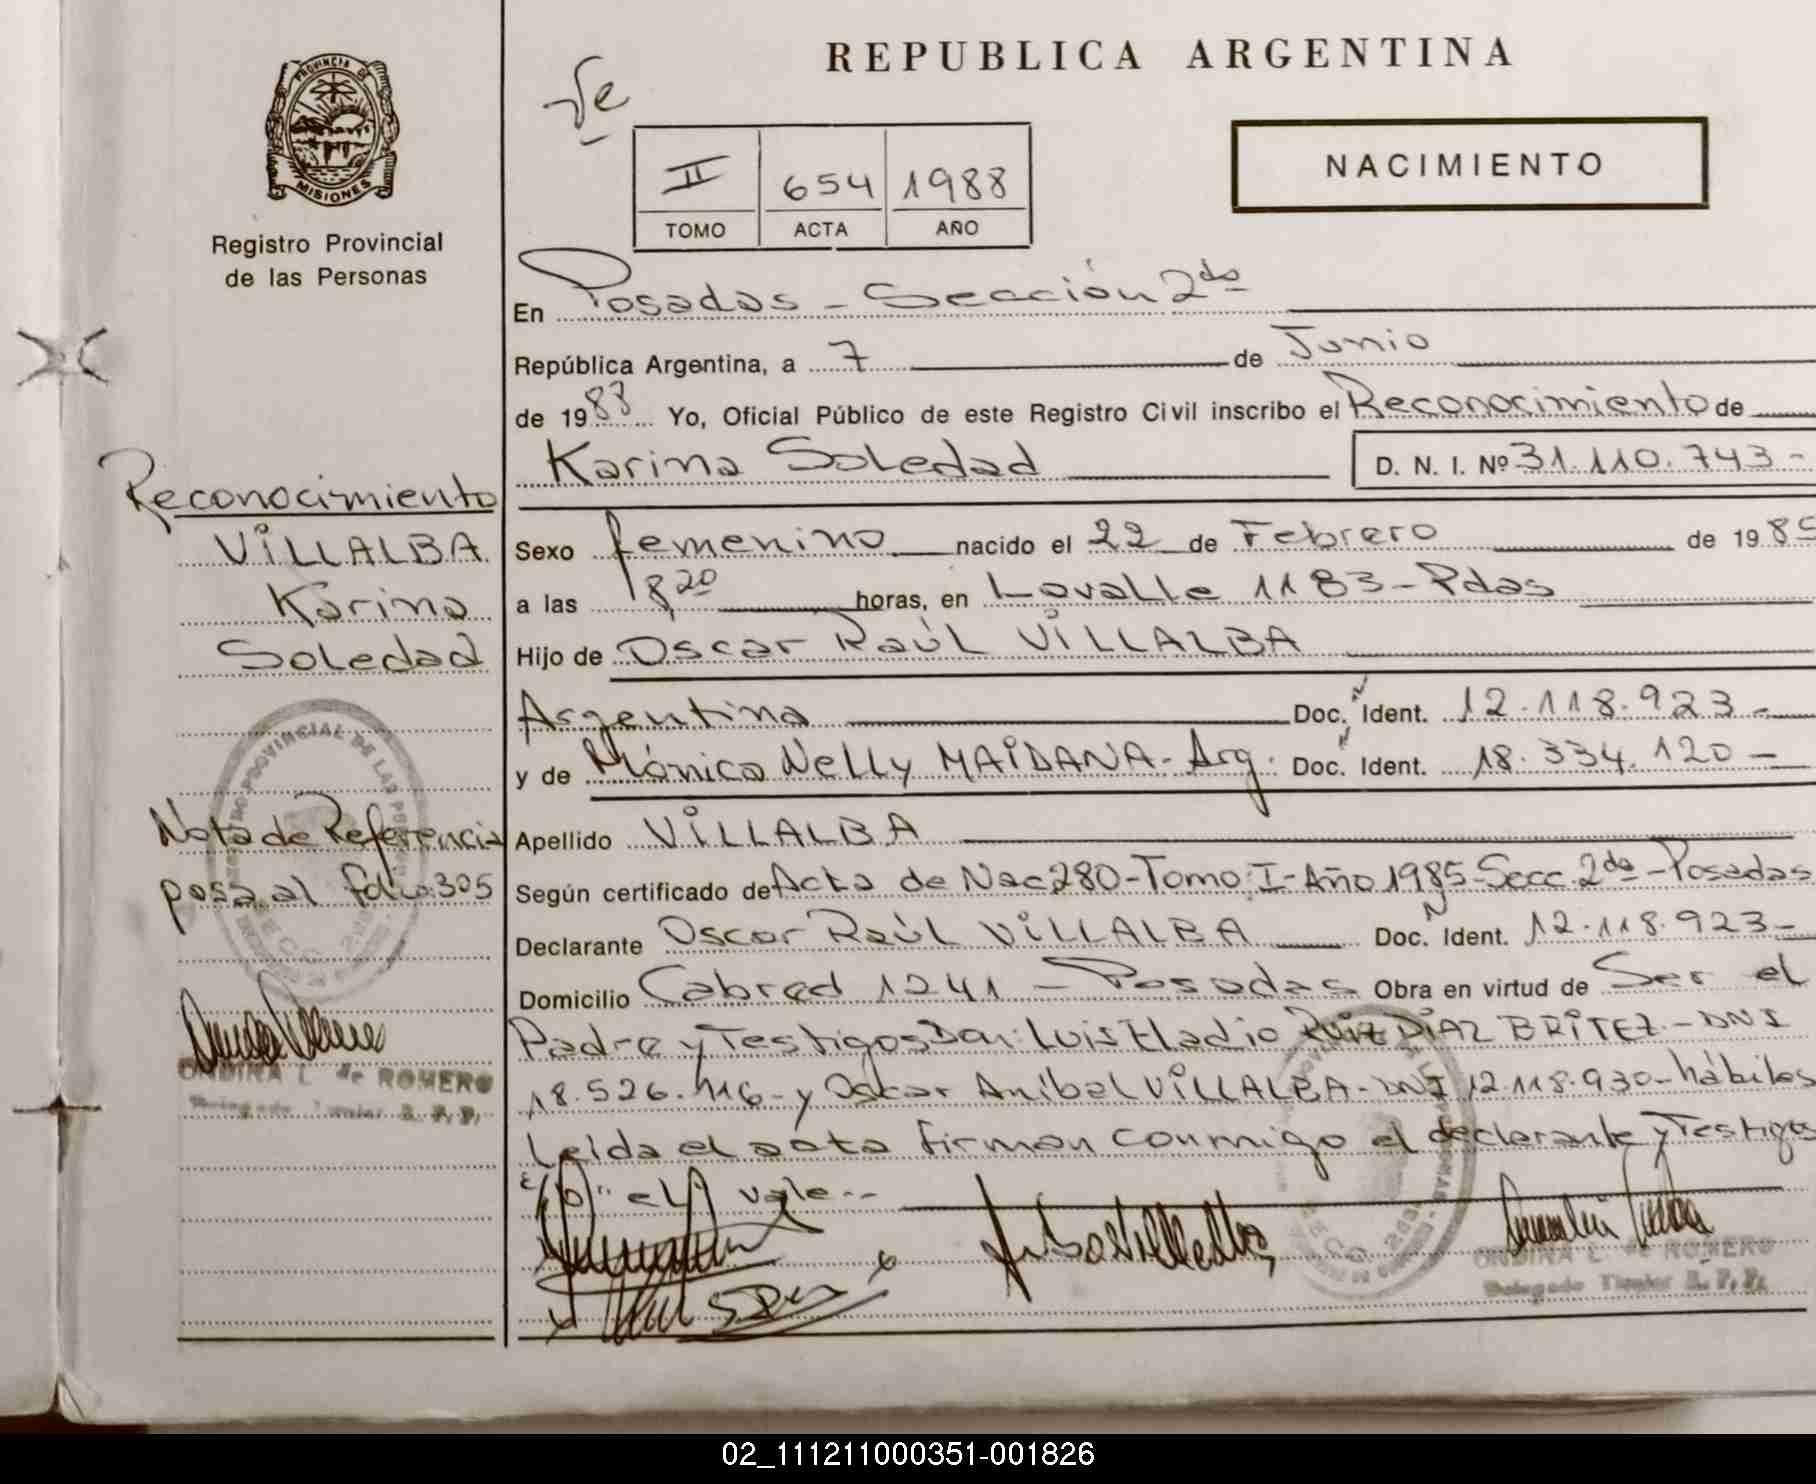 REPUBLICA ARGENTINA
PROVINCIA DE
MISIONES
Registro Provincial
de las Personas
II 654 1988
TOMO ACTA AÑO
NACIMIENTO
En Posadas - Sección 2da
República Argentina, a 7 de Junio
de 1988 Yo, Oficial Público de este Registro Civil inscribo el Reconocimiento de
Karina Soledad D. N. I. Nº 31.110.743-
Sexo femenino nacido el 22 de Febrero de 1985
a las 8,20 horas, en Lavalle 1183 - Pdas
Hijo de Oscar Raúl VILLALBA
Argentina Doc. Ident. 12.118.923-
y de Mónica Nelly MAIDANA - Arg. Doc. Ident. 18.334.120-
Apellido VILLALBA
Según certificado de Acta de Nac 280-Tomo: I-Año 1985-Secc. 2da-Posadas
Declarante Oscar Raúl VILLALBA Doc. Ident. 12.118.923-
Domicilio Cabred 1241 - Posadas Obra en virtud de Ser el
Padre y Testigos Don: Luis Eladio Ruiz DIAZ BRITEZ - DNI
18.526.116- y Oscar Aníbal VILLALBA - DNI 12.118.930- hábiles
Leída el acta firman conmigo el declarante y Testigos
el vale--
Reconocimiento
VILLALBA
Karina
Soledad
Nota de Referencia
pasa al folio 305
ONDINA L. de ROMERO
Delegada Titular R. P. P.
ONDINA L. de ROMERO
Delegada Titular R. P. P.
02_111211000351-001826